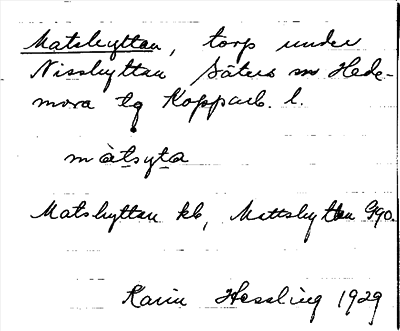 Matshyttan, torp under
Nisshyttan Säters sn Hede-
mora tg Kopparb. l.
màtsyta
Matshyttan kb, Mattshyttan Ggo.
Karin Hessling 1929